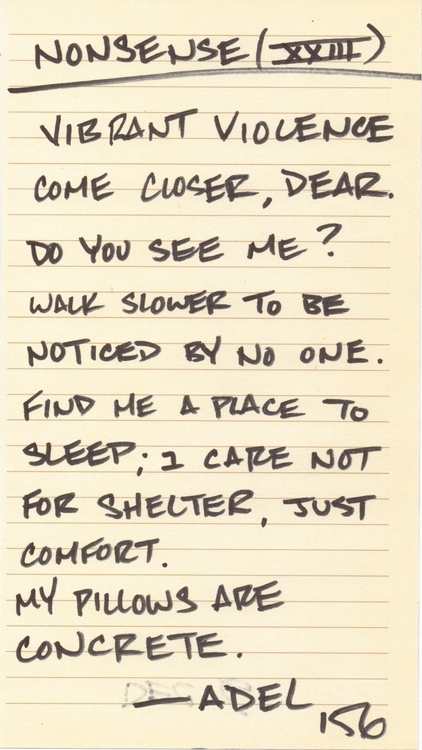 NONSENSE (XXIII)
VIBRANT VIOLENCE
COME CLOSER, DEAR.
DO YOU SEE ME?
WALK SLOWER TO BE
NOTICED BY NO ONE.
FIND ME A PLACE TO
SLEEP; I CARE NOT
FOR SHELTER, JUST
COMFORT.
MY PILLOWS ARE
CONCRETE.
— ADEL
156